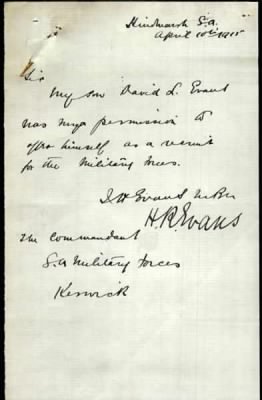 Hindmarsh S.A.
April 10th 1915
Sir
My son David L. Evans
has my permission to
offer himself as a recruit
for the Military Forces.
Evans
H. R. Evans
The Commandant
S. A Military Forces
Keswick